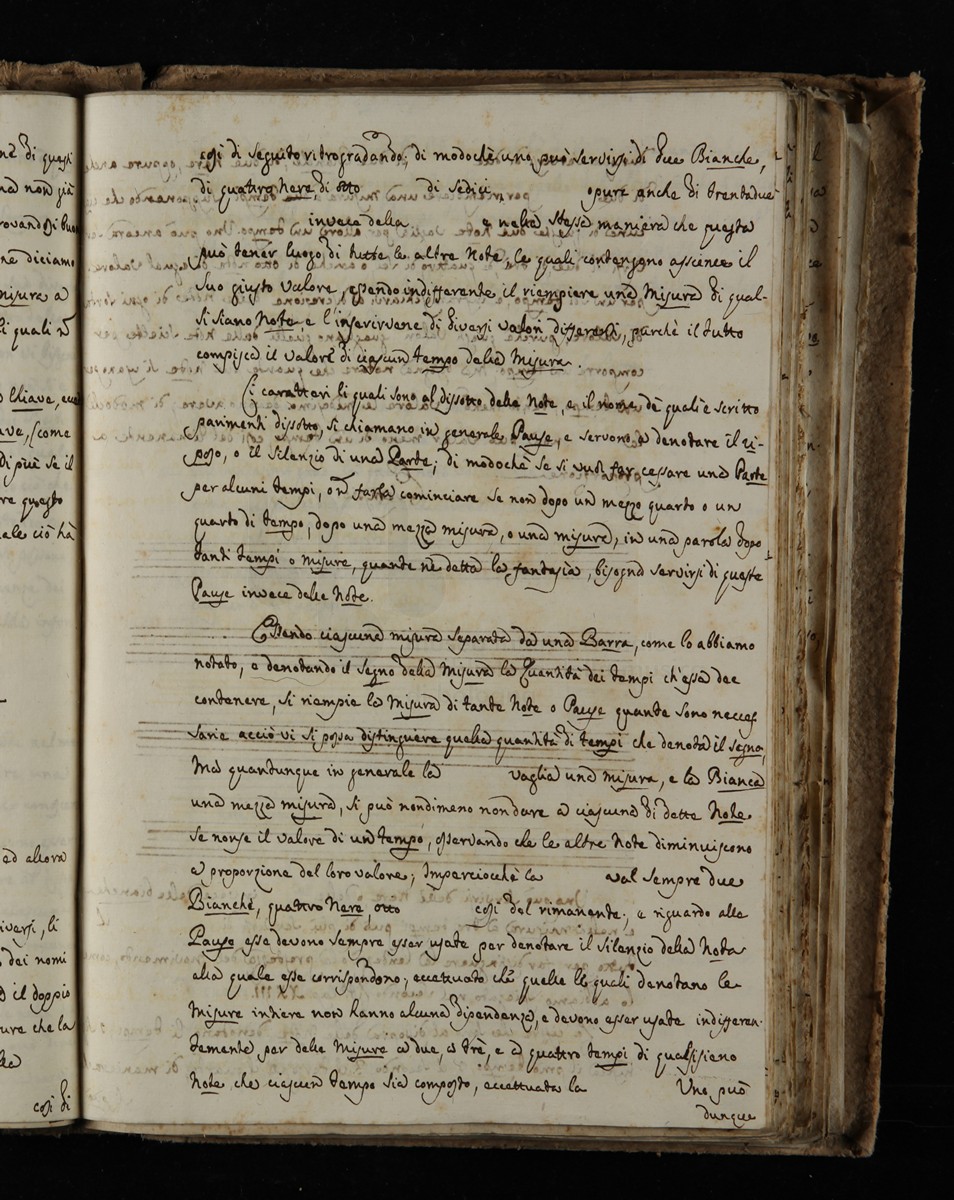 così di seguito ritrogradando; di modochè uno può servirsi di due Bianche,
di quattro Nere, di otto di sedici opure anche di trentadue
invece della e nella stessa maniera che questa
può tener luogo di tutte le altre Note, le quali contengono assieme il
suo giusto valore, essendo indifferente il riempiere una Misura di qual-
si siano Note, e l'inservirvene di diversi valori differenti, purchè il tutto
compisca il valore di ciascun tempo della Misura.
I caratteri li quali sono al dissotto della Note, e il nome de quali è scritto
parimenti dissotto, si chiamano in generale Pause, e servono a denotare il ri-
poso, o il silenzio di una Parte; di modochè se si vuol far cessare una Parte
per alcuni tempi, o farla cominciare se non dopo un mezzo quarto o un
quarto di tempo, dopo una mezza misura, o una misura, in una parola dopo
tanti tempi o misure, quante ne detta la fantasia, bisogna servirsi di queste
Pause invece delle Note.
Essendo ciascuna misura separata da una Barra, come lo abbiamo
notato, e denotando il segno della Misura la Quantità dei tempi ch'essa dee
contenere, si riempie la Misura di tante Note o Pause quante sono neces
sarie acciò vi si possa distinguere quella quantità di tempi che denota il segno,
Ma quantunque in generale la vaglia una misura, e la Bianca
una mezza misura, si può nondimeno non dare a ciascuna di dette Note
se non se il valore di un tempo, osservando che le altre Note diminuiscono
a proporzione del loro valore; Imperciocchè la val sempre due
Bianche, quattro Nere, otto così del rimanente; e riguardo alle
Pause esse devono sempre esser usate per denotare il silenzio della Nota
alla quale esse corrispondono; eccettuato che quelle le quali denotano le
Misure intiere non hanno alcuna dipendenza, e devono esser usate indifferen-
temente per delle Misure a due, a trè, e a quattro tempi di qualsisieno
Note che ciascun tempo sia composto, eccettuata la Uno può
dunque
ne di questi
na non già
ne diciamo
misura a
li quali
Chiave,
di più se il
re questo
ale ciò hà
ed allora
iversi, li
dei nomi
il doppio
ure che la
così di